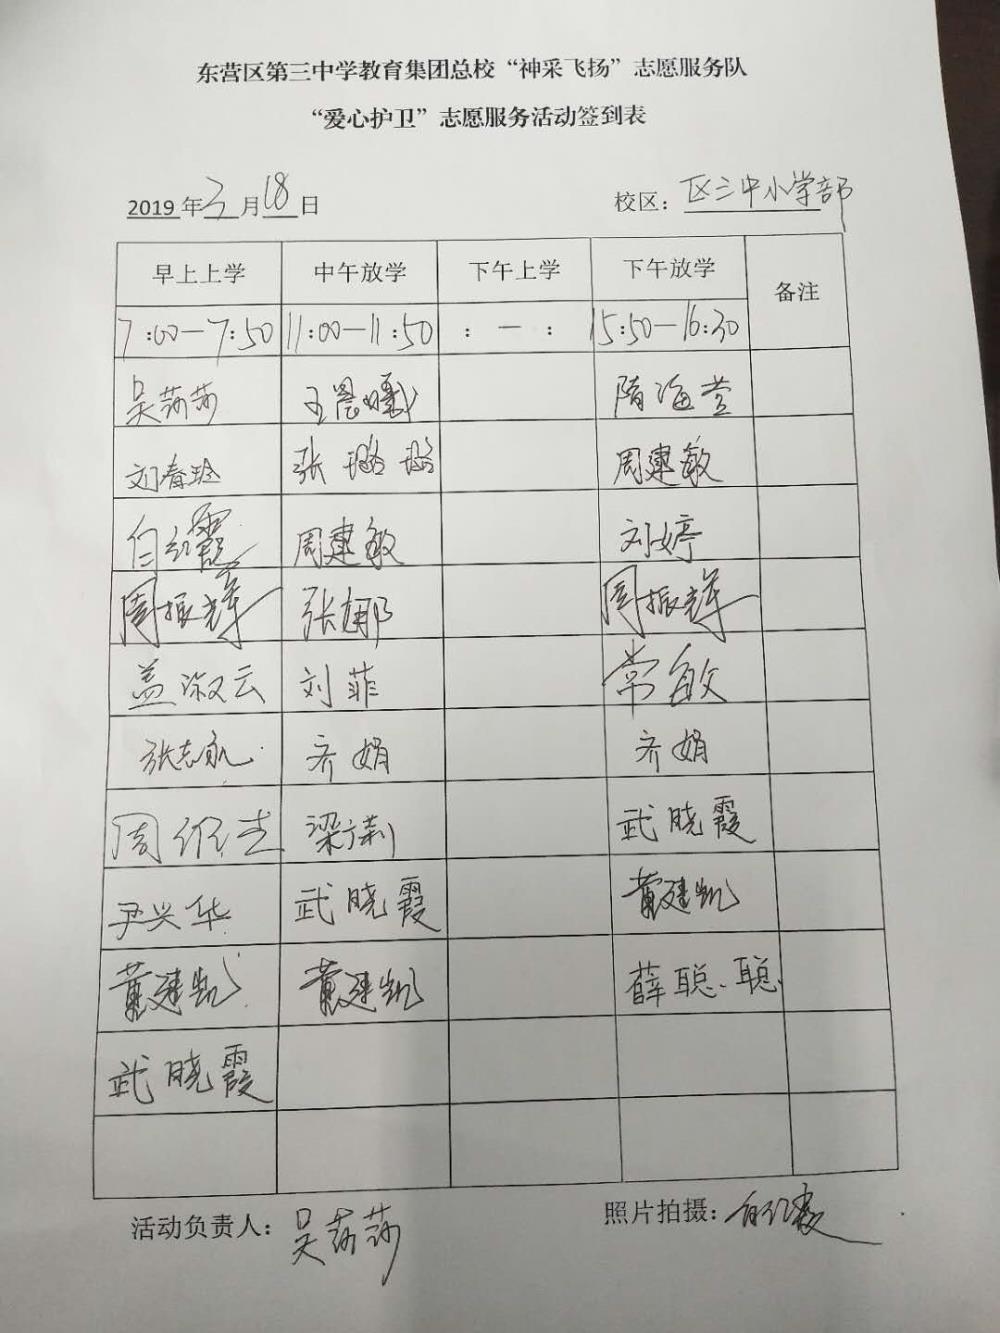 东营区第三中学教育集团总校“神采飞扬”志愿服务队
“爱心护卫”志愿服务活动签到表
2019年3月18日 校区：区三中小学部
早上上学 中午放学 下午上学 下午放学 备注
7:00—7:50 11:00—11:50 : — : 15:50—16:30
吴莎莎 隋海萱
刘春玲 张璐璐 周建敏
白红霞 周建敏 刘婷
周振辉 张娜 周振辉
盖淑云 刘菲 常敏
张志永 齐娟 齐娟
周維吉 梁广莉 武晓霞
尹兴华 武晓霞 董建凯
董建凯 董建凯 薛聪聪
武晓霞
活动负责人：吴莎莎 照片拍摄：白红霞